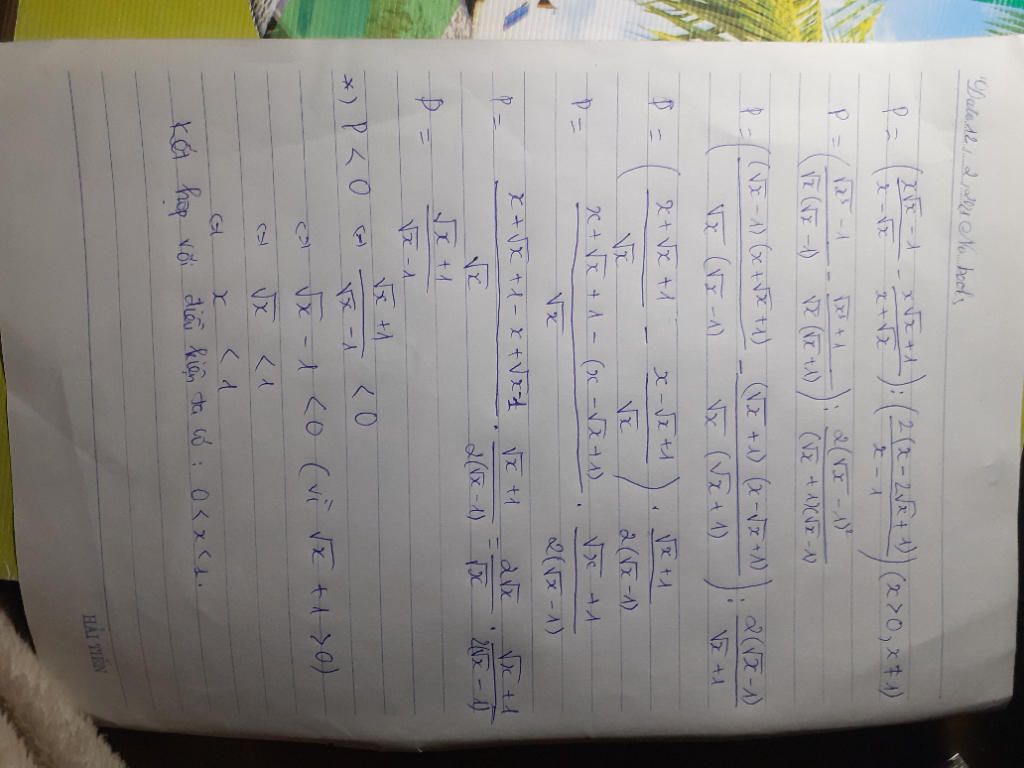 P = (x√x - 1 / x - √x - x√x + 1 / x + √x) : (2(x - 2√x + 1) / x - 1) (x > 0, x ≠ 1)
P = (√x³ - 1 / √x(√x - 1) - √x³ + 1 / √x(√x + 1)) : 2(√x - 1)² / (√x + 1)(√x - 1)
P = ((√x - 1)(x + √x + 1) / √x(√x - 1) - (√x + 1)(x - √x + 1) / √x(√x + 1)) : 2(√x - 1) / √x + 1
P = (x + √x + 1 / √x - x - √x + 1 / √x) . √x + 1 / 2(√x - 1)
P = x + √x + 1 - (x - √x + 1) / √x . √x + 1 / 2(√x - 1)
P = x + √x + 1 - x + √x - 1 / √x . √x + 1 / 2(√x - 1) = 2√x / √x . √x + 1 / 2(√x - 1)
P = √x + 1 / √x - 1
*) P < 0 ⇔ √x + 1 / √x - 1 < 0
⇔ √x - 1 < 0 (vì √x + 1 > 0)
⇔ √x < 1
⇔ x < 1
Kết hợp với điều kiện ta có : 0 < x < 1.
HẢI TIẾN